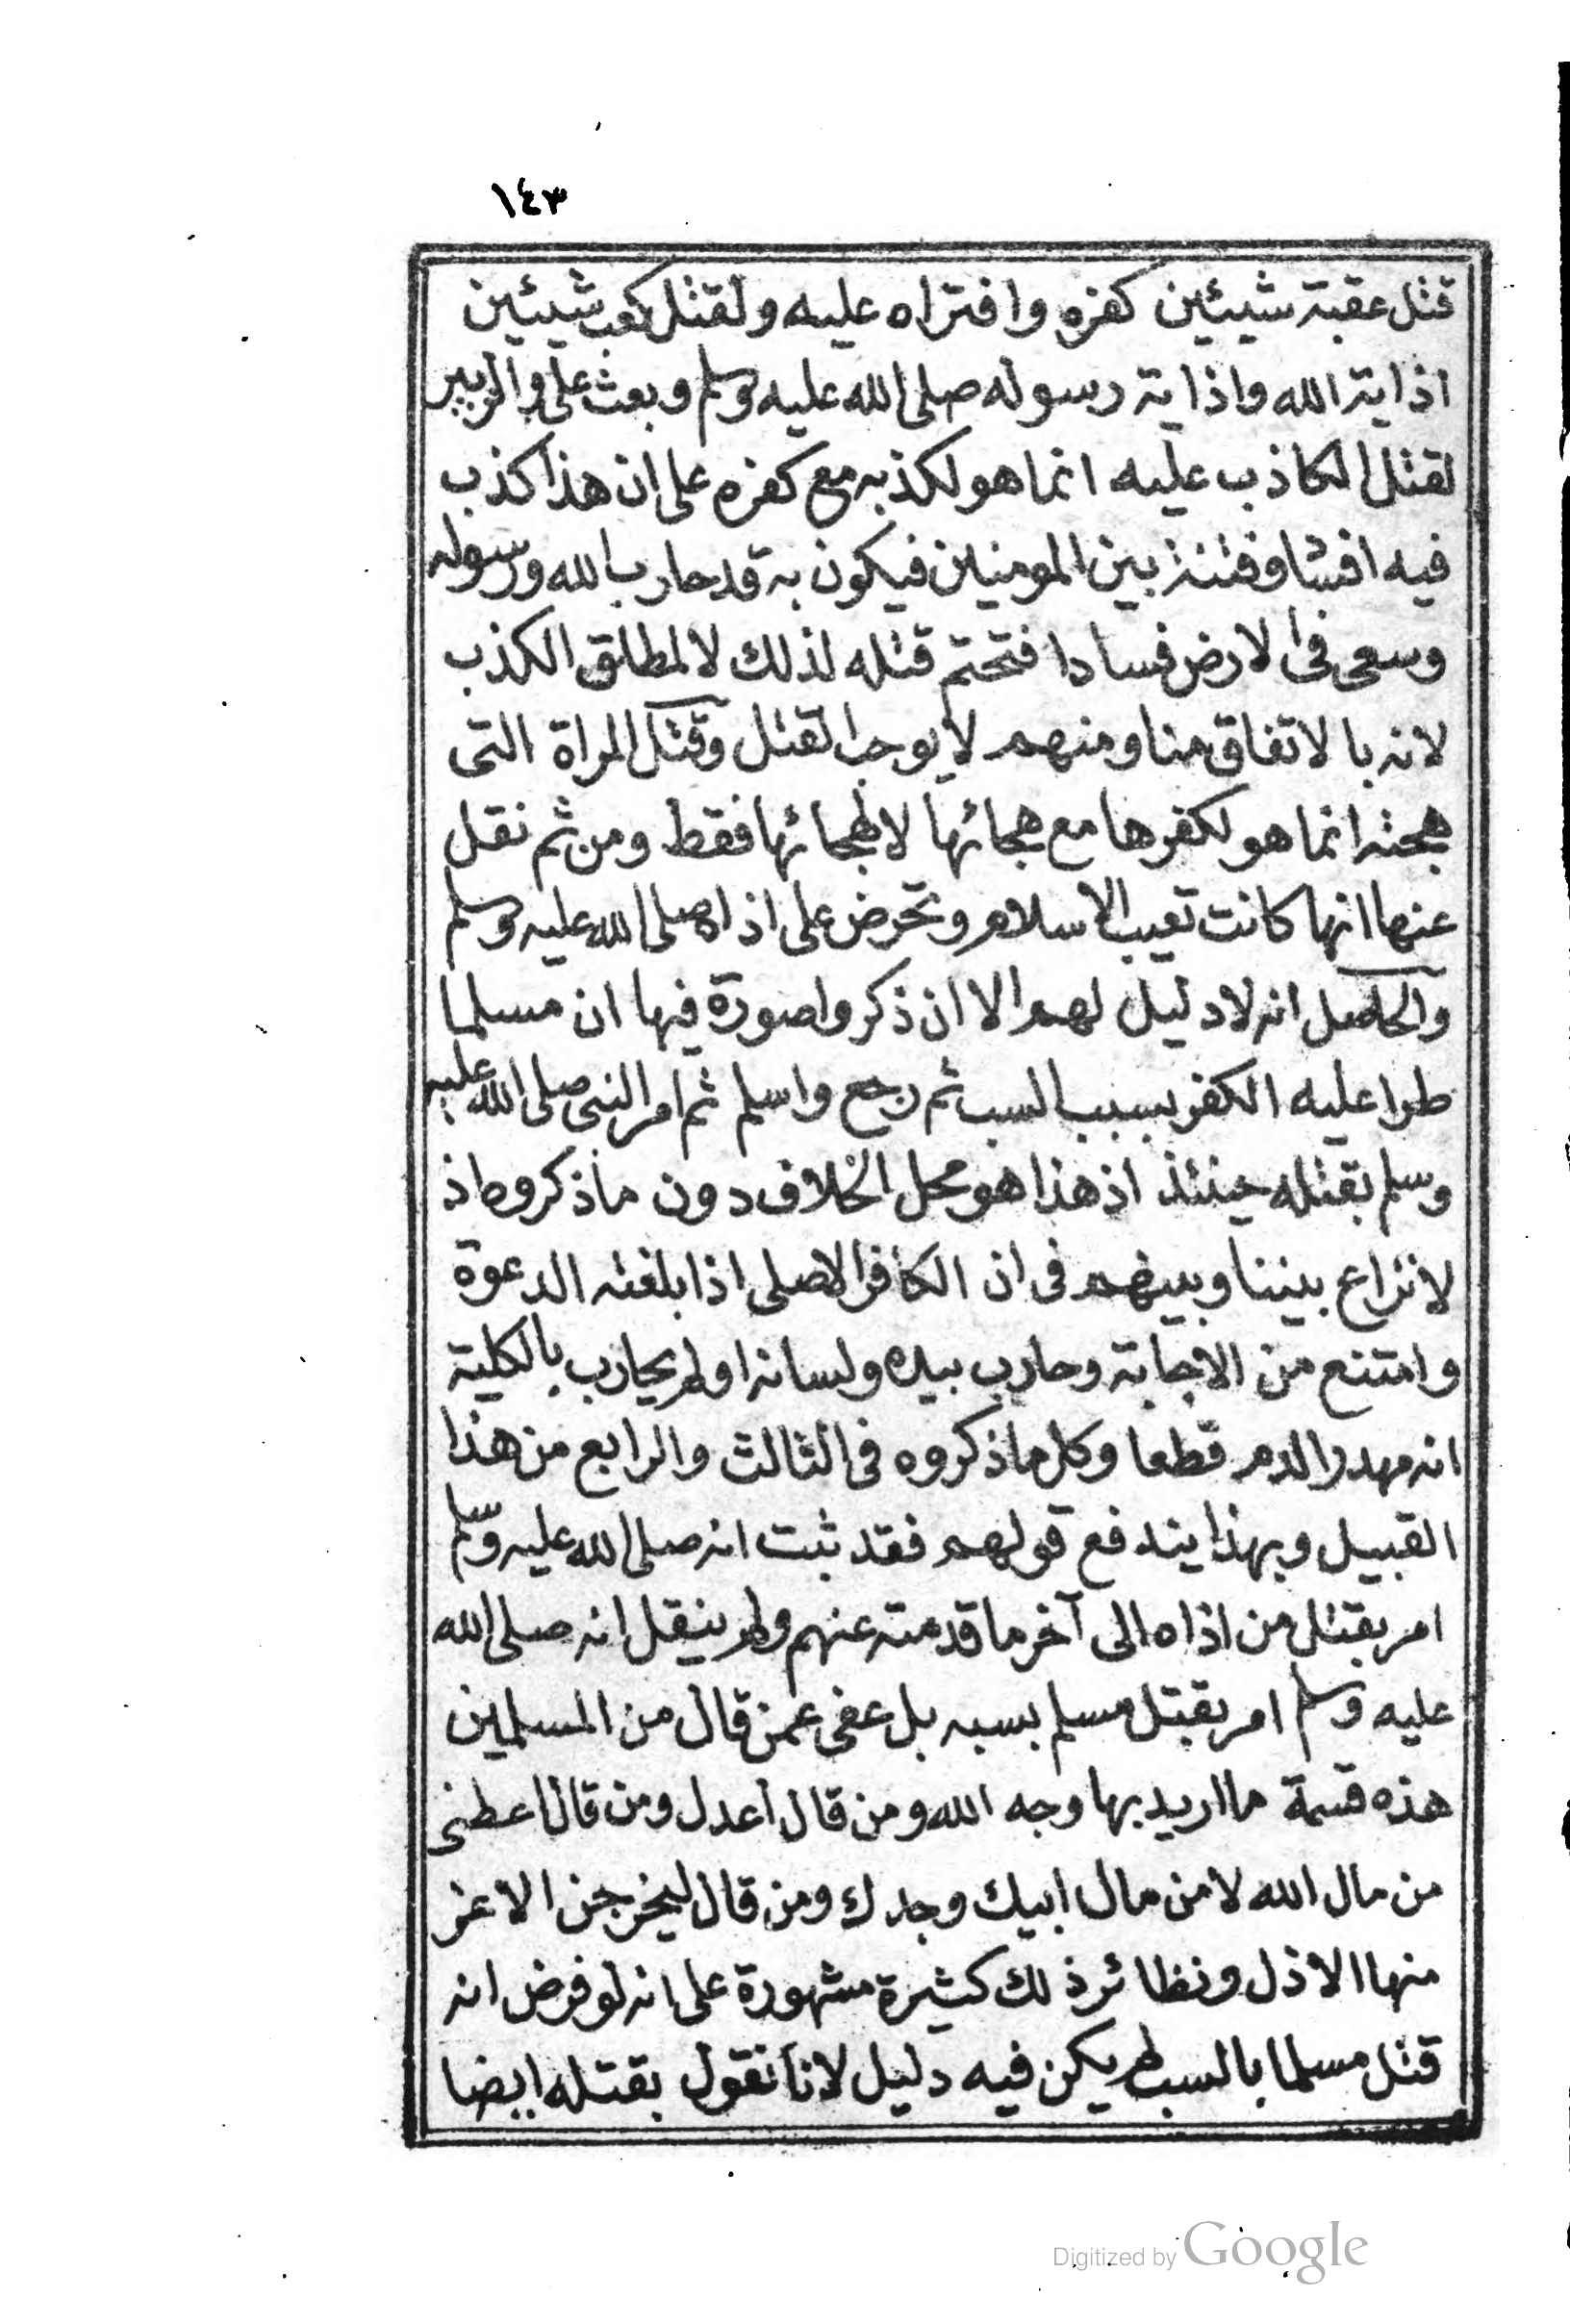 ١٤٣
قتل عقبة شيئين كفره وافتراه عليه ولقتل كعب شيئين
اذاية الله واذاية رسوله صلى الله عليه وسلم وبعث على والزبير
لقتل الكاذب عليه انما هو لكذبه مع كفره على ان هذا كذب
فيه افشا وفتنة بين المومنين فيكون به قد حارب الله ورسوله
وسعى فى الارض فسادا فتحتم قتله لذلك لا لمطلق الكذب
لانه بالاتفاق منا ومنهم لا يوجب القتل وقتل المراة التى
هجته انما هو لكفرها مع هجائها لا لهجائها فقط ومن ثم نقل
عنها انها كانت تعيب الاسلام وتحرض على اذاه صلى الله عليه وسلم
والحاصل انه لا دليل لهم الا ان ذكروا صورة فيها ان مسلما
طرا عليه الكفر بسبب السب ثم رجع واسلم ثم امر النبى صلى الله عليه
وسلم بقتله حينئذ اذ هذا هو محل الخلاف دون ما ذكروه اذ
لا نزاع بيننا وبينهم فى ان الكافر الاصلى اذا بلغته الدعوة
وامتنع من الاجابة وحارب بيده ولسانه اولم يحارب بالكلية
انه مهدر الدم قطعا وكل ما ذكروه فى الثالث والرابع من هذا
القبيل وبهذا يندفع قولهم فقد ثبت انه صلى الله عليه وسلم
امر بقتل من اذاه الى آخر ما قدمته عنهم ولم ينقل انه صلى الله
عليه وسلم امر بقتل مسلم بسبه بل عفى عمن قال من المسلمين
هذه قسمة ما اريد بها وجه الله ومن قال اعدل ومن قال اعطنى
من مال الله لا من مال ابيك وجدك ومن قال ليخرجن الاعز
منها الاذل ونظائر ذلك كثيرة مشهورة على انه لو فرض انه
قتل مسلما بالسب لم يكن فيه دليل لانا نقول بقتله ايضا
Digitized by Google